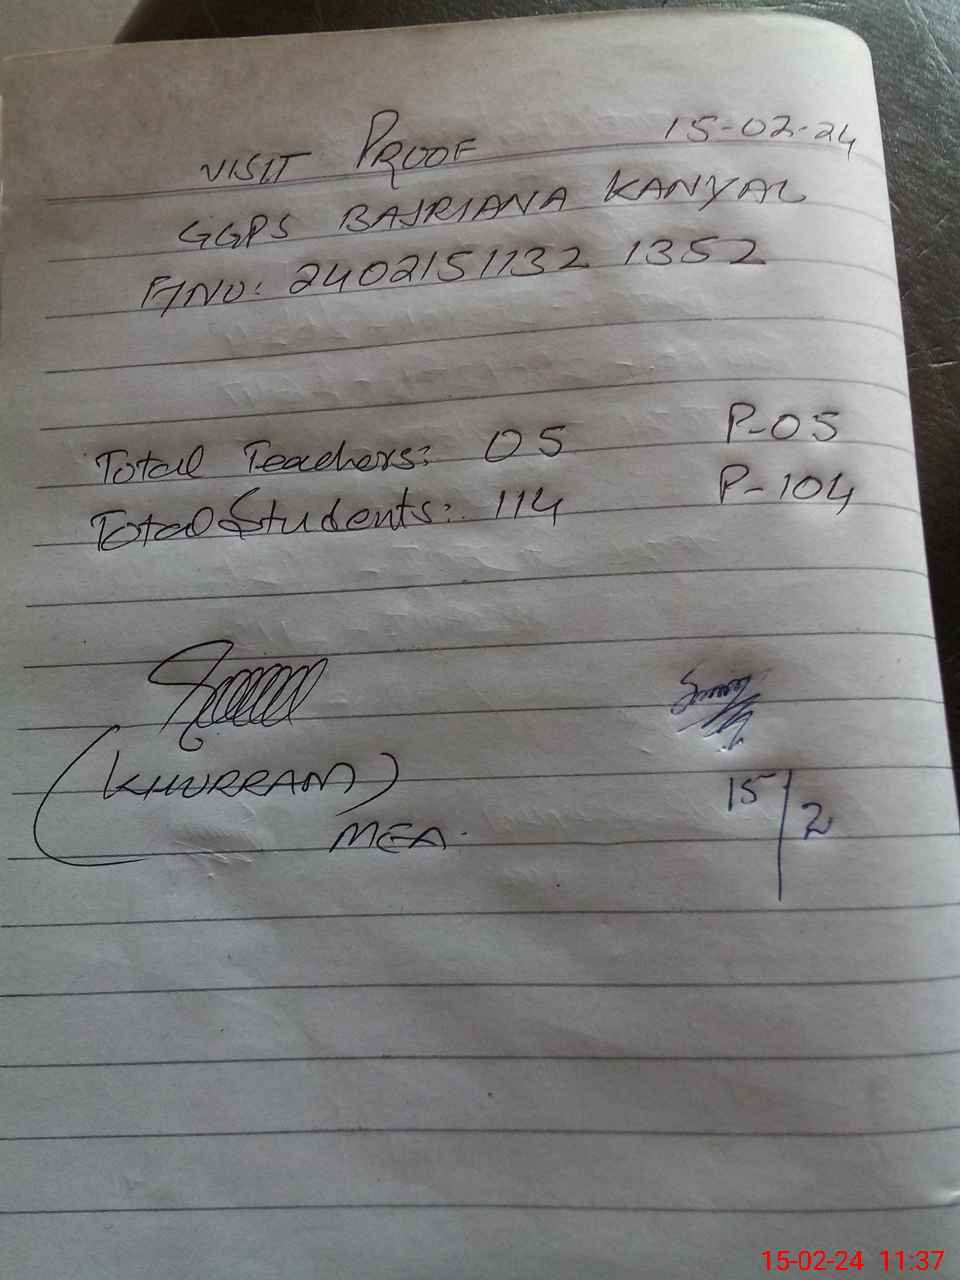 VISIT PROOF 15-02-24
GGPS BAJRIANA KANYAL
F/NO: 2402151132 1352
Total Teachers: 05 P-05
Total Students: 114 P-104
(KHURRAM)
MEA.
15/2
15-02-24 11:37